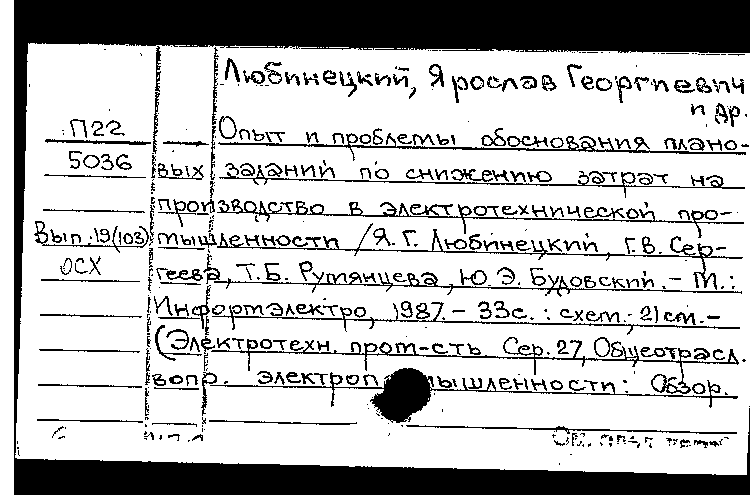 Любинецкий, Ярослав Георгиевич
и др.
П22
5036
Вып.19(103)
ОСХ
Опыт и проблемы обоснования плано-
вых заданий по снижению затрат на
производство в электротехнической про-
мышленности / Я. Г. Любинецкий, Г.В. Сер-
геева, Т.Б. Румянцева, Ю.Э. Будовский. - М.:
Информэлектро, 1987. - 33с. : схем.; 21см. -
(Электротехн. пром-сть. Сер. 27, Общеотрасл.
вопр. электроп мышленности: Обзор.